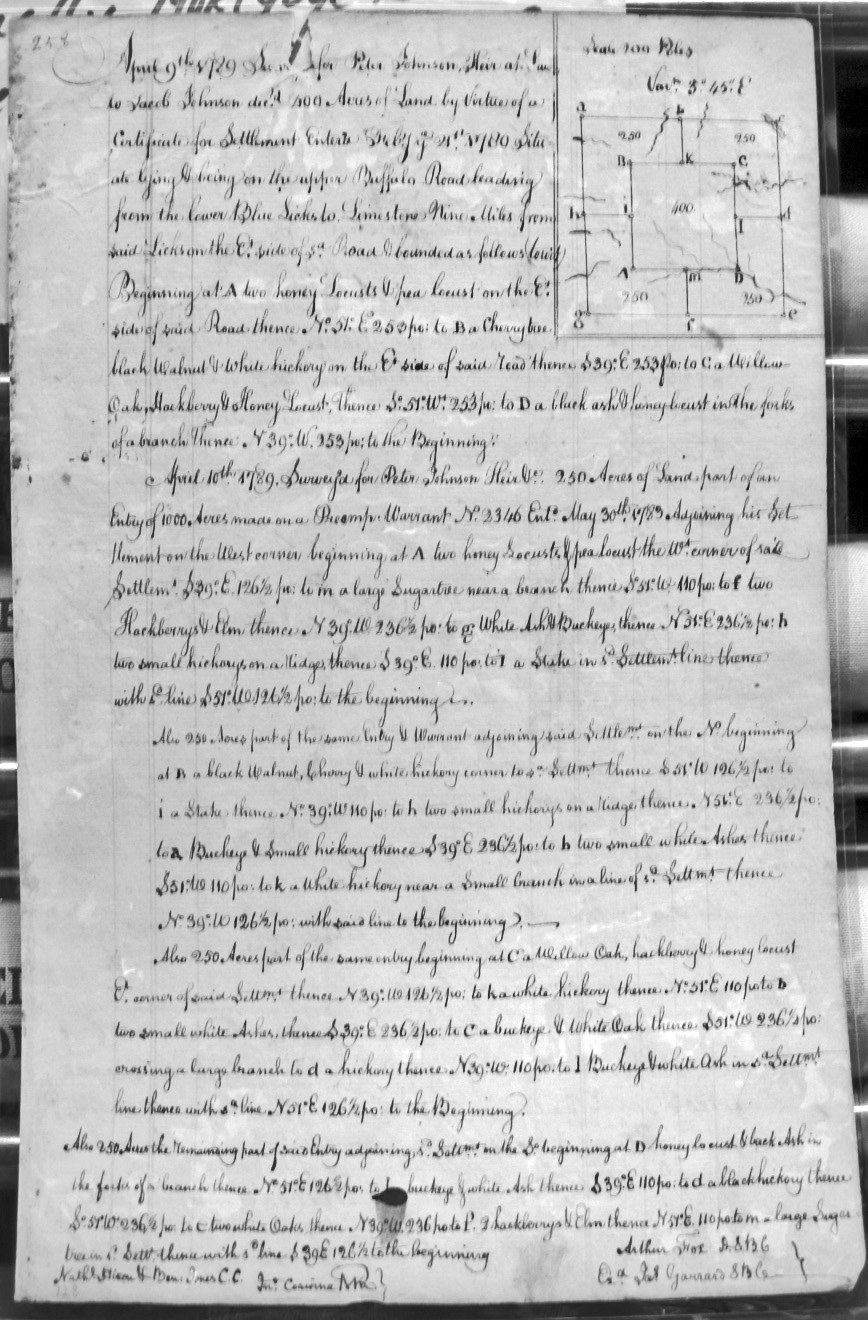 258
April 9th 1789 for Peter Johnson, Heir at Law
to Jacob Johnson decd. 400 Acres of Land by Virtue of a
Certificate for Settlement Enterd Feby ye 21st 1780 Situ
ate lying & being on the upper Buffalo Road leading
from the lower Blue Licks to Limestone Nine Miles from
said Licks on the Et. side of sd. Road & bounded as follows (towit)
Beginning at A two honey Locusts & pea locust on the Et.
side of said Road thence No. 51° E 253 po: to B a Cherry tree
black Walnut & White hickory on the Et side of said road thence S 39° E 253 po: to C a Willow
Oak, Hackberry & Honey Locust, thence So. 51° W. 253 po: to D a black ash & honey locust in the forks
of a branch thence N 39° W. 253 po: to the Beginning.
April 10th 1789. Survey'd for Peter Johnson Heir &c. 250 Acres of Land part of an
Entry of 1000 Acres made on a Preemp: Warrant No. 2346 Entd. May 30th 1783 Adjoining his Set
tlement on the West corner beginning at A two honey Locusts & pea locust the Wt. corner of said
Settlemt. S 39° E. 126½ po: to m a large Sugartree near a branch thence So. 51° W. 110 po: to f two
Hackberrys & Elm thence N 39° W 236½ po: to g White Ash & Buckeye, thence N 51° E 236½ po: h
two small hickorys on a ridge, thence S 39° E. 110 po: to i a Stake in sd. Settlemt. line thence
with sd. line S 51° W 126½ po: to the beginning.
Also 250 Acres part of the same Entry & Warrant adjoining said Settlemt. on the No. beginning
at B a black Walnut, Cherry & white hickory corner to sd. Settmt. thence S 51° W 126½ po: to
i a Stake thence No. 39° W 110 po: to h two small hickorys on a ridge thence N 51° E 236½ po:
to a Buckeye & Small hickory thence S 39° E 236½ po: to b two small white Ashes thence
S 51° W 110 po: to k a White hickory near a Small branch in a line of sd. Settmt. thence
No. 39° W 126½ po: with said line to the beginning.
Also 250 Acres part of the same entry beginning at C a Willow Oak, hackberry & honey locust
Et. corner of said Settmt. thence N 39° W 126½ po: to k a white hickory thence No. 51° E 110 po to b
two small white Ashes, thence S 39° E 236½ po: to C a buckeye & White Oak thence S 51° W 236½ po:
crossing a large branch to d a hickory thence N 39° W. 110 po: to I Buckeye & white Ash in sd. Settmt.
line thence with sd. line N 51° E 126½ po: to the Beginning.
Also 250 Acres the remaining part of said Entry adjoining sd. Settmt. on the So beginning at D honey locust & back Ash in
the forks of a branch thence No. 51° E 126½ po: to buckeye & white Ash thence S 39° E 110 po: to d a black hickory thence
So. 51° W. 236½ po: to e two white Oaks, thence N 39° W. 236 po to f. 2 hackberrys & Elm thence N 51° E. 110 po to m a large Sugar
tree in sd. Settt. thence with sd. line S 39 E 126½ to the beginning
Arthur Fox D.S.B.C
C.C.
Exd. Jas Garrard S B C
Scale 200 Poles
Varn. 3° 45' E
a b c
250 250
B K C
400
h i I d
A m D
250 250
g f e